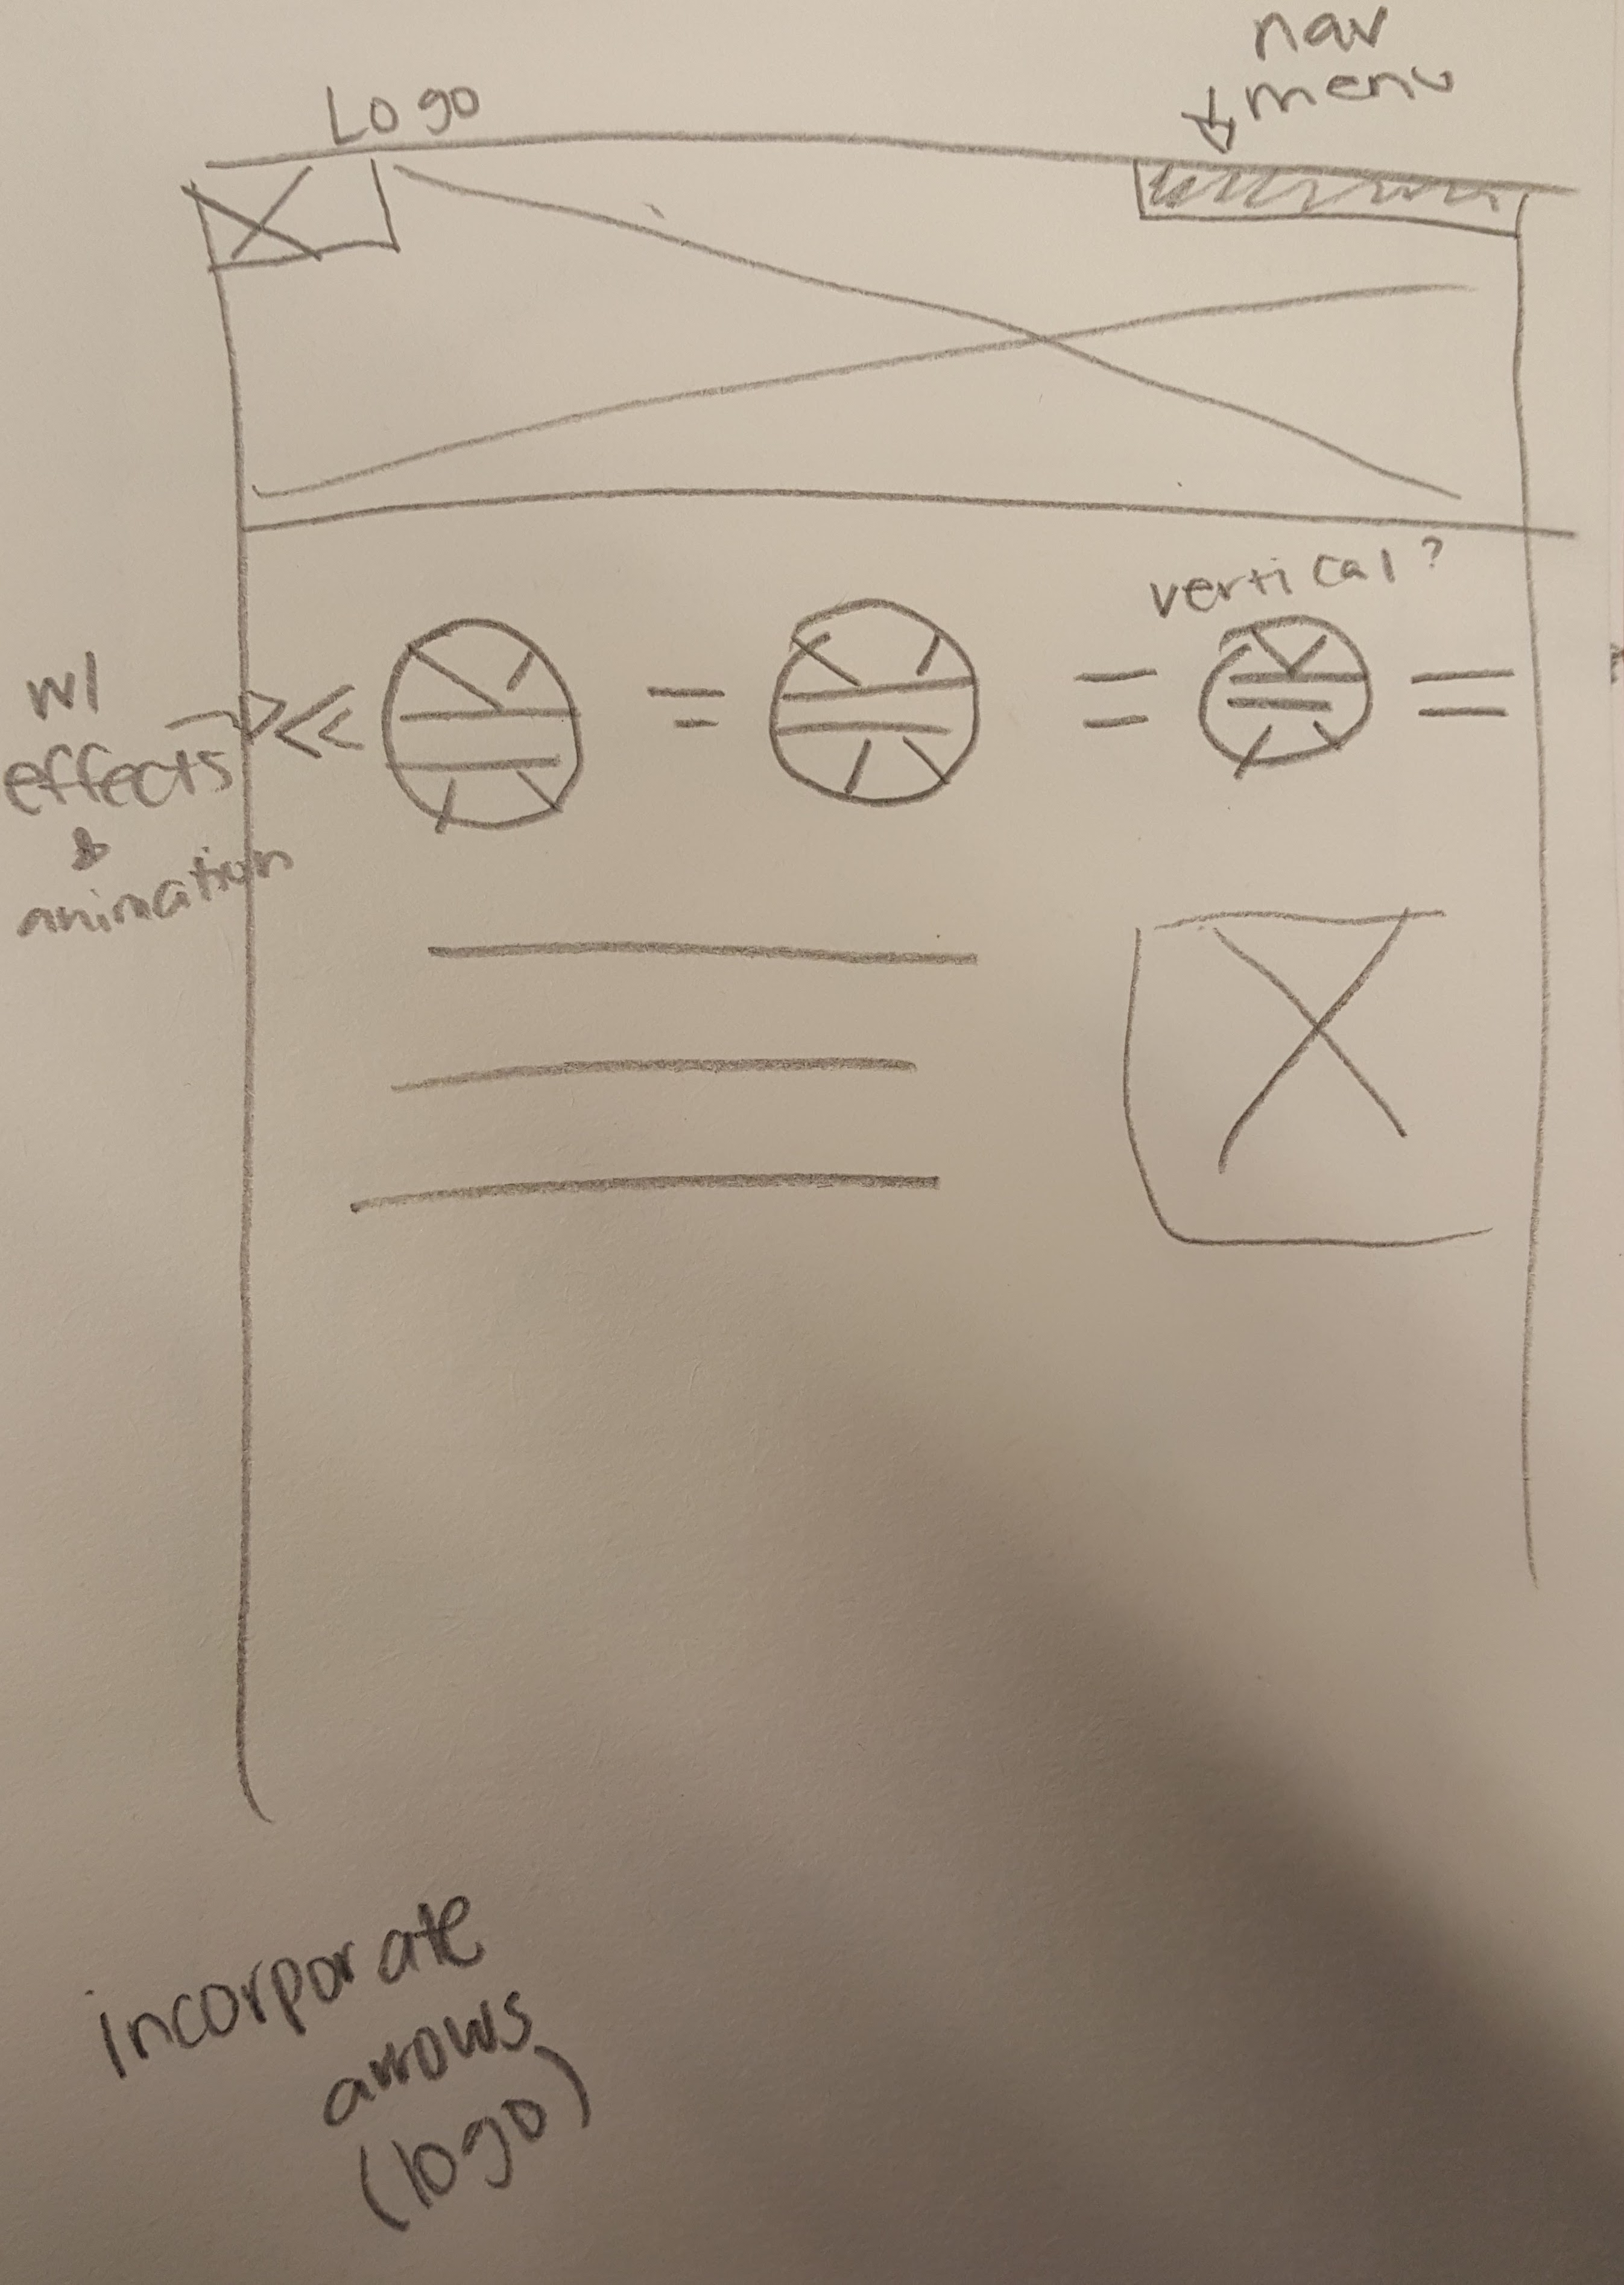 nav
menu
Logo
vertical?
w/
effects
&
animation
incorporate
arrows
(logo)